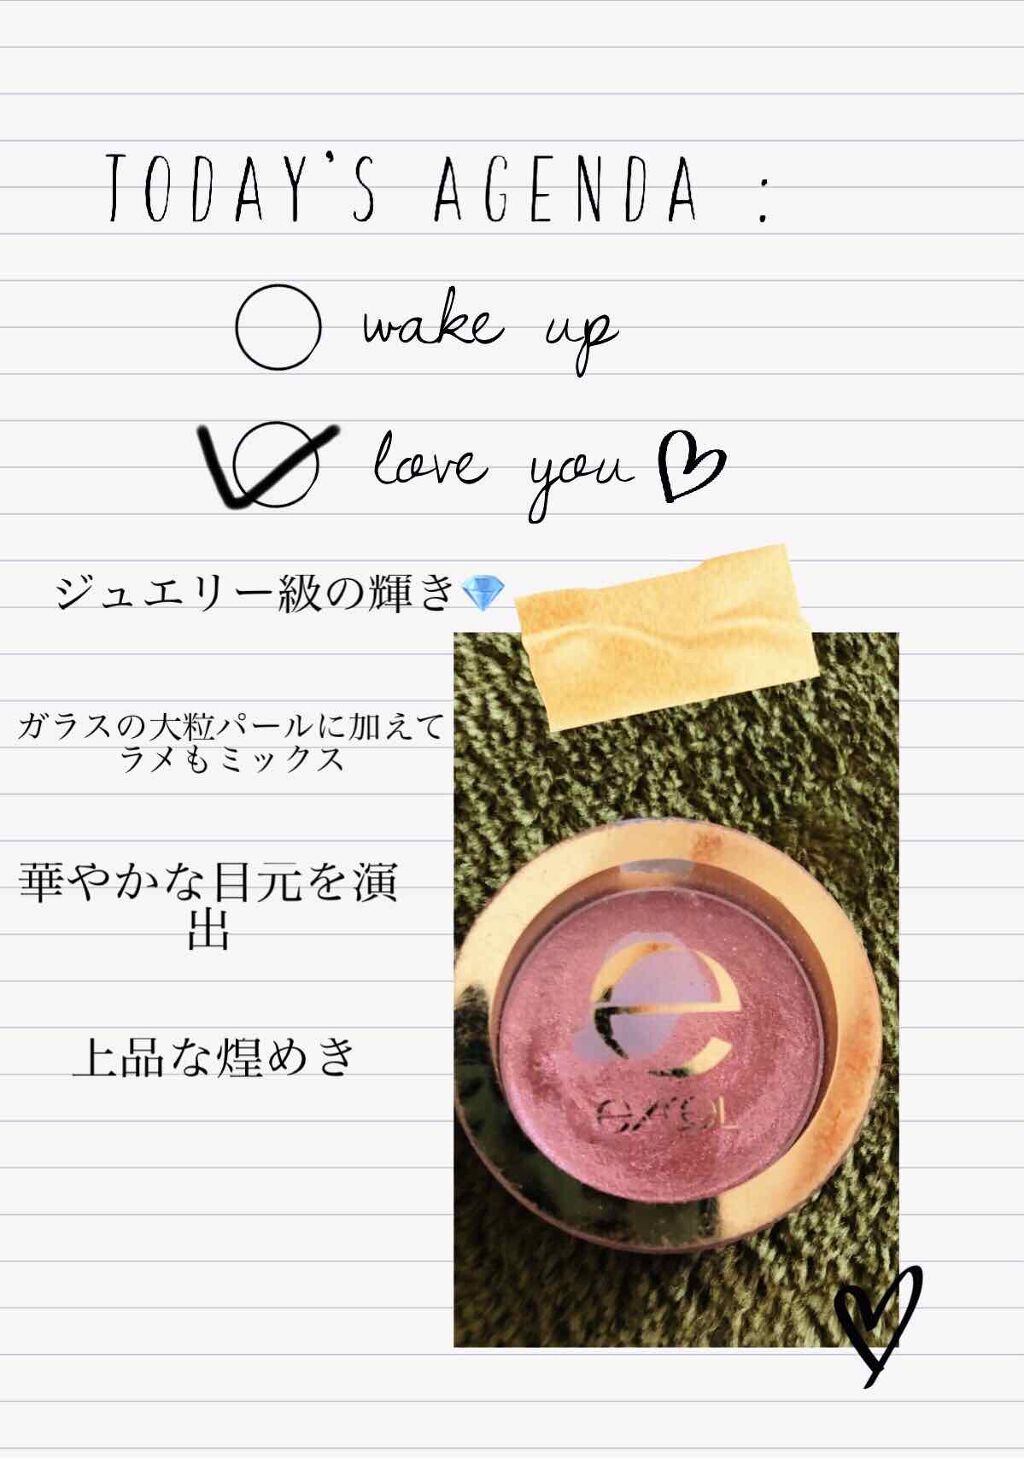 TODAY'S AGENDA :
wake up
love you
ジュエリー級の輝き💎
ガラスの大粒パールに加えて
ラメもミックス
華やかな目元を演
出
上品な煌めき
e
excel